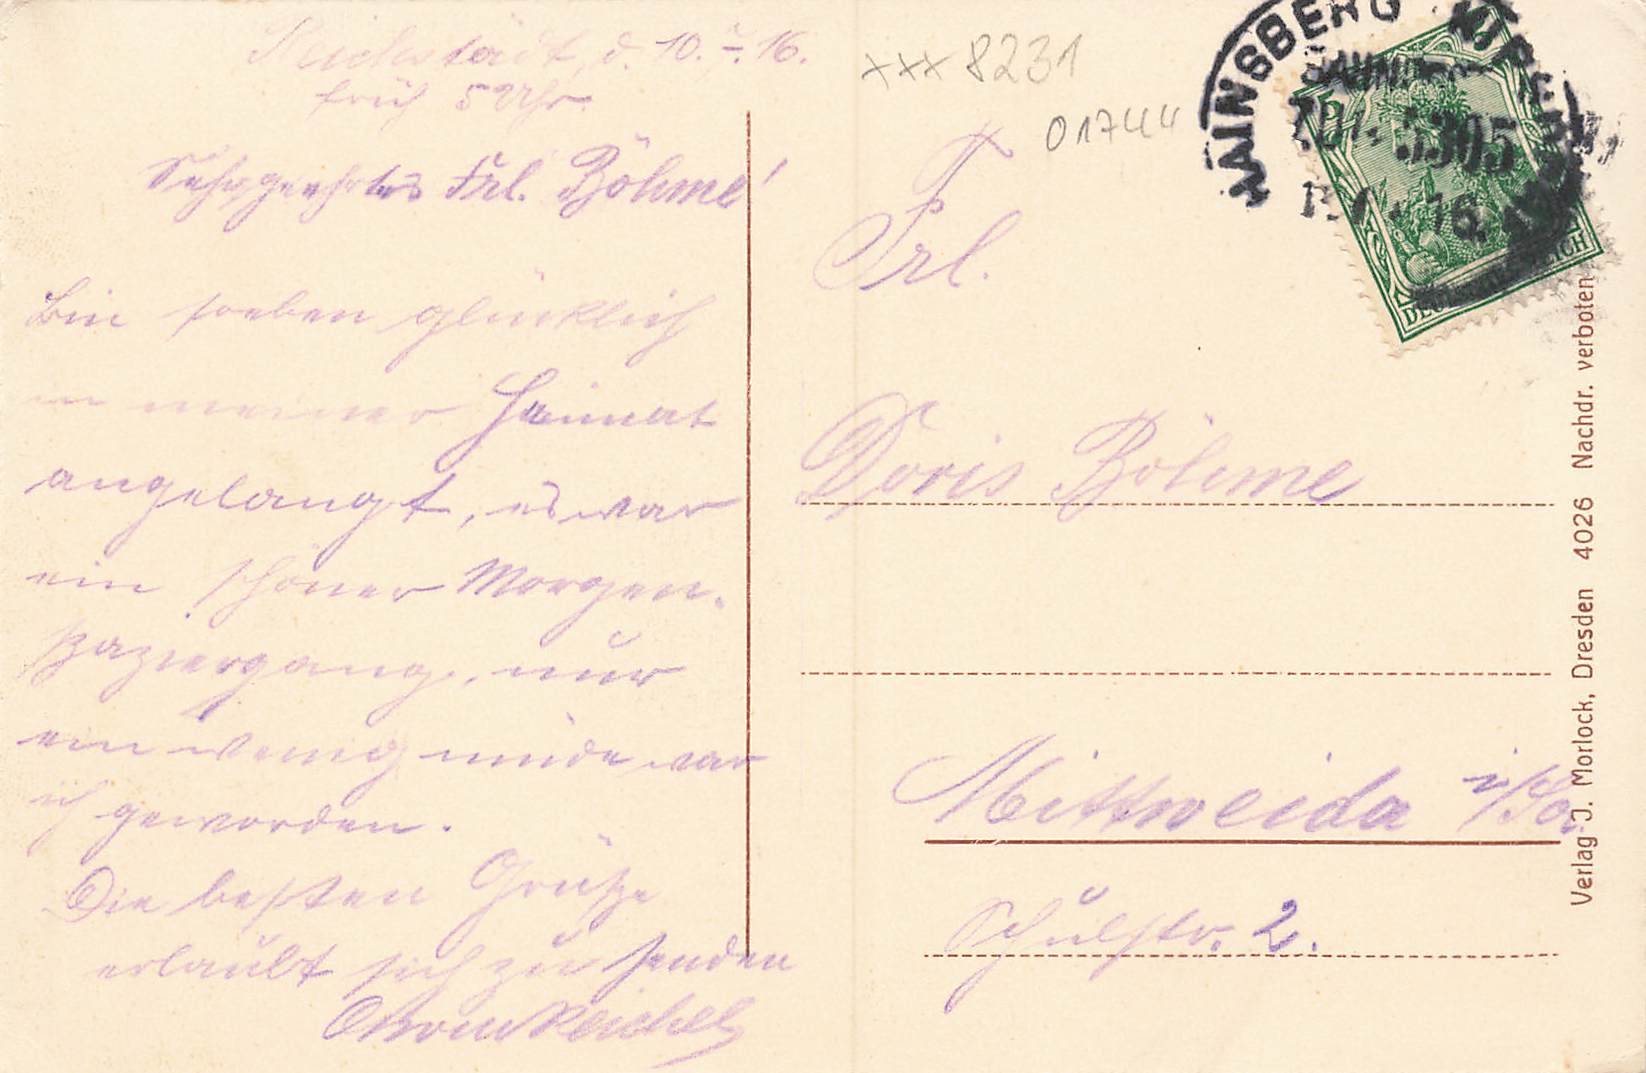 Reichstädt, d. 10. 7. 16.
früh 5 Uhr
Sehrgeehrtes Frl. Böhme!
Bin soeben glücklich
in meiner Heimat
angelangt, es war
ein schöner Morgen-
spaziergang, nur
ein wenig müde war
ich geworden.
Die besten Grüße
erlaubt sich zu senden
Reichel
xxx 8231
01744
HAINSBERG
3305
16.
DEUTSCHES REICH
Frl.
Doris Böhme
Mittweida i/Sa.
Schulstr. 2.
Verlag J. Morlock, Dresden 4026 Nachdr. verboten